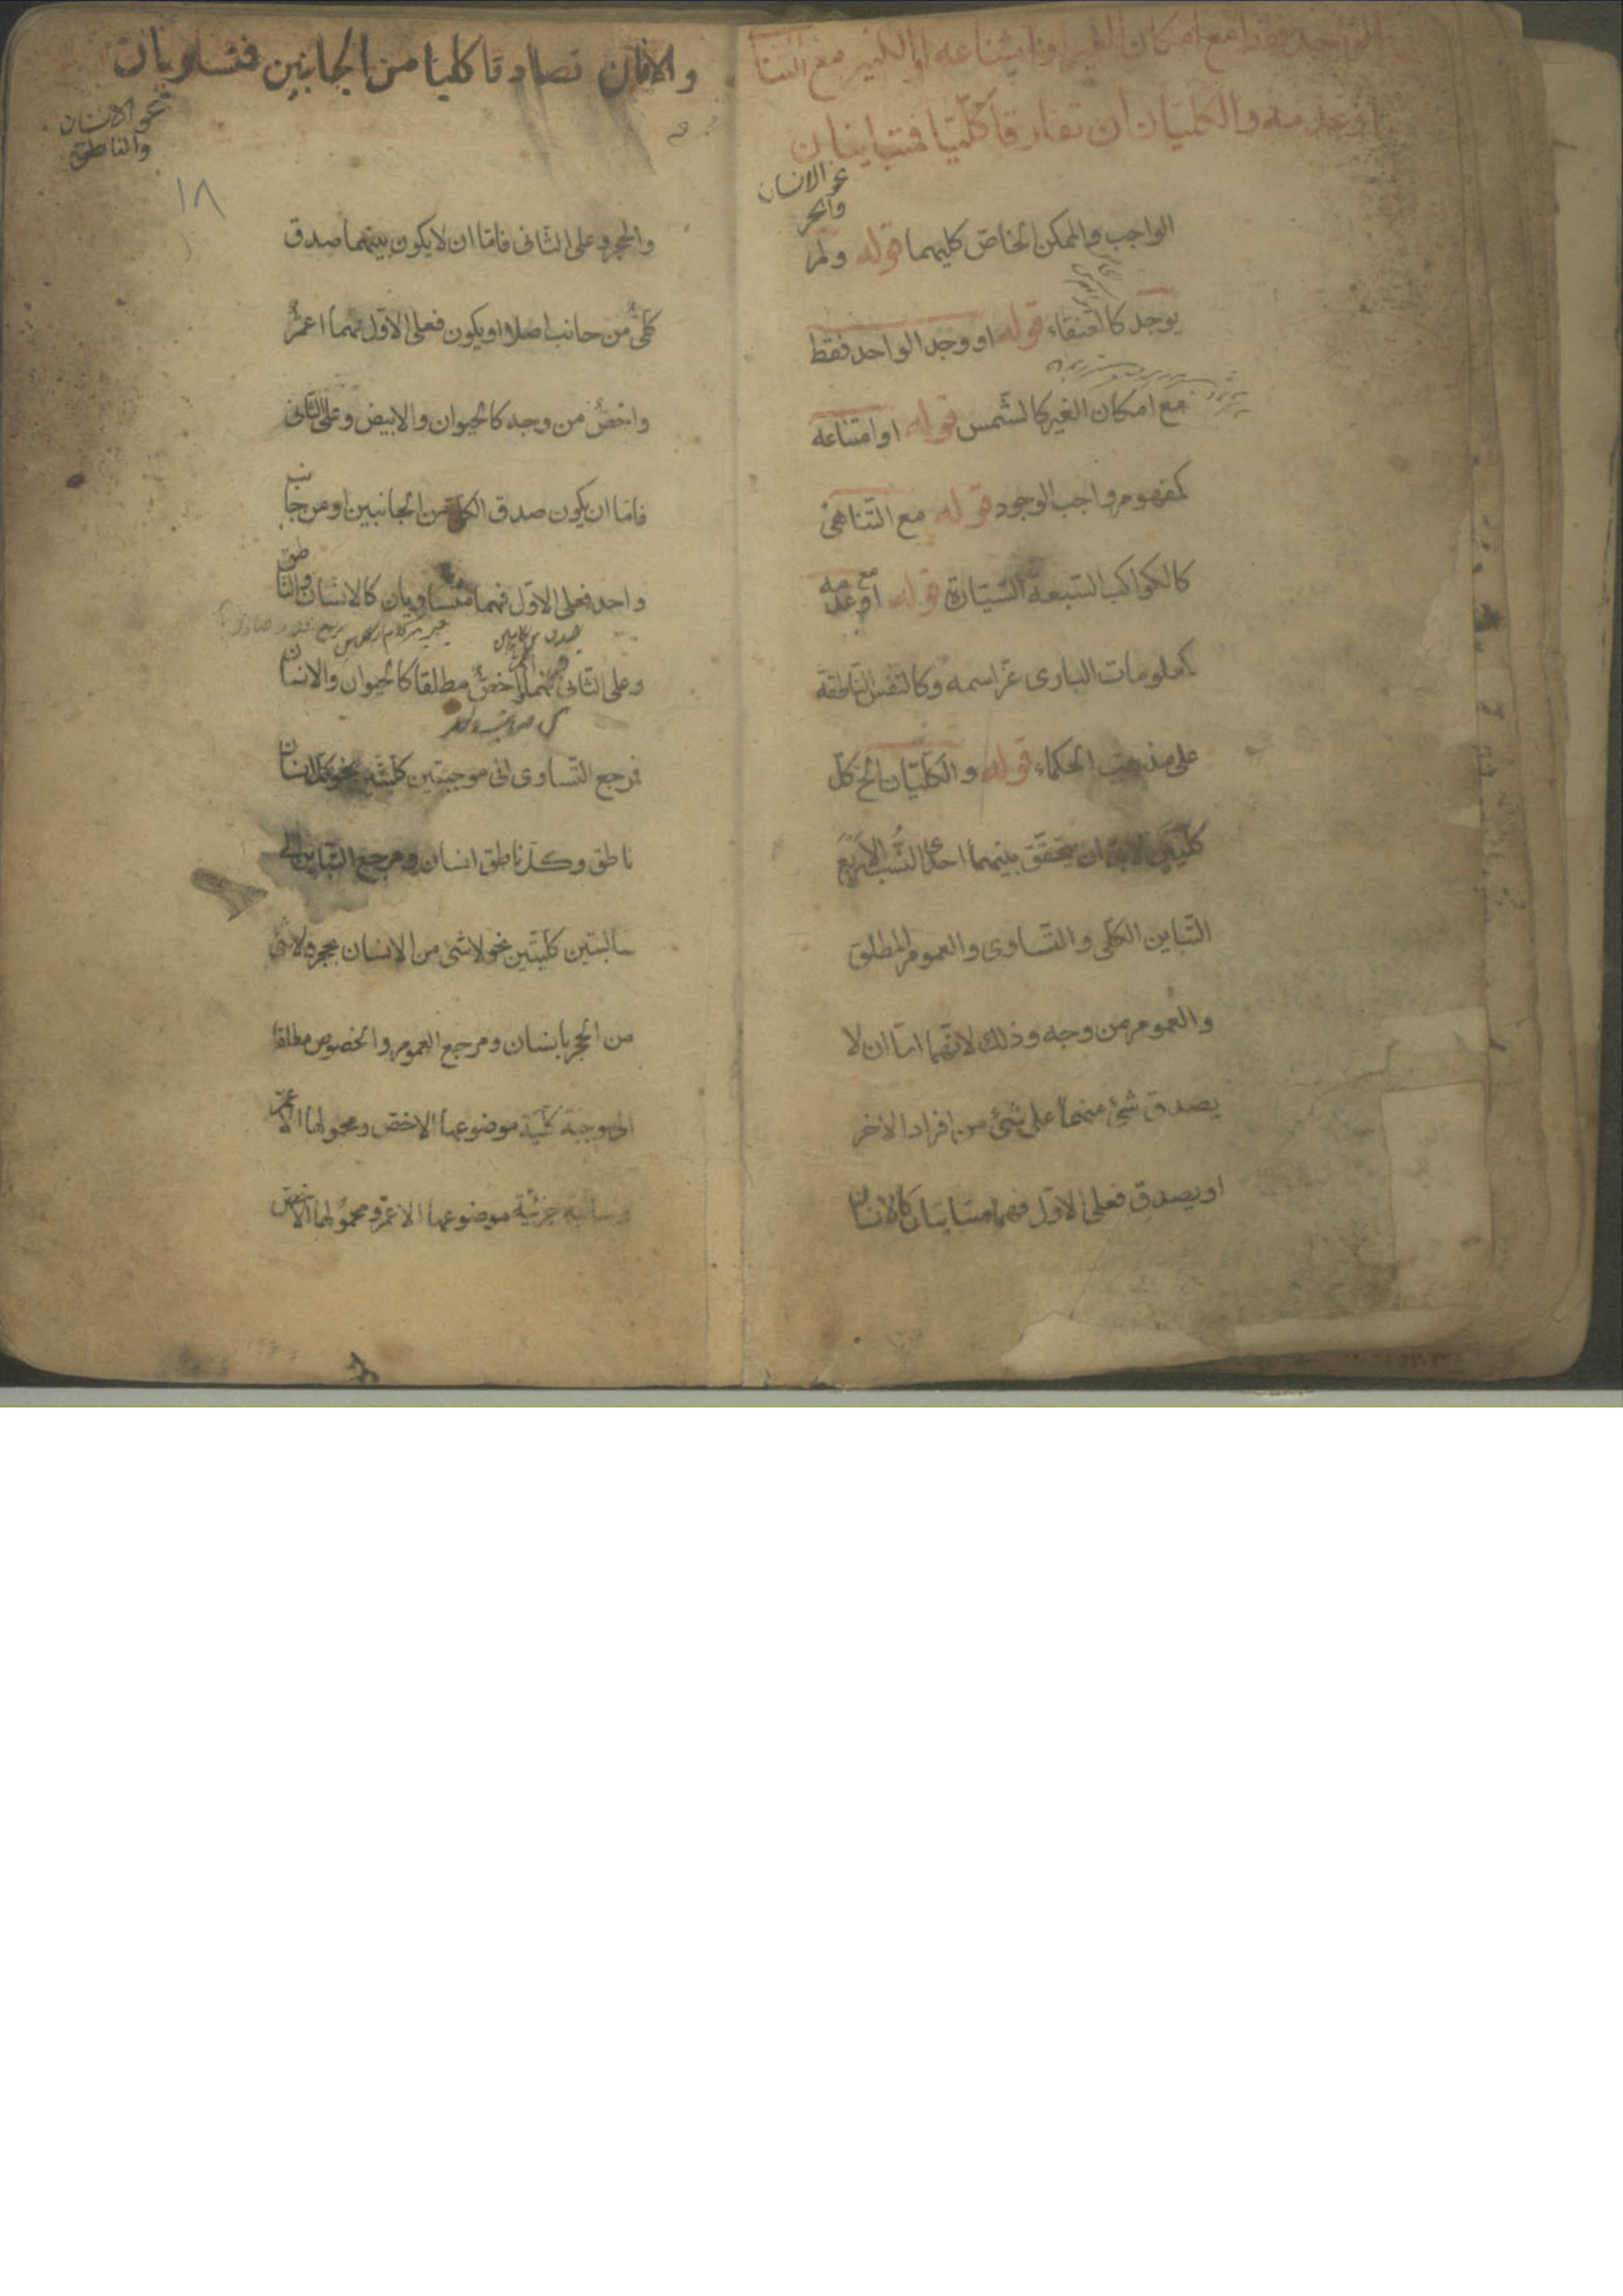 الواحد فقط مع امكان الغير او امتناعه او الكثير مع التناهى
او عدمه والكليان ان تفارقا كليّا فمتباينان
نحو الانسان
والحجر
الواجب والممكن الخاصّ كليهما قوله ولم
يوجد كالعنقاء قوله او وجد الواحد فقط
مع امكان الغير كالشّمس قوله او امتناعه
كمفهوم واجب الوجود قوله مع التّناهى
كالكواكب السّبعة السّيّارة قوله او عدمه
كمعلومات البارى عزّ اسمه وكالنفس النّاطقة
على مذهب الحكماء قوله والكلّيّان الخ كلّ
كلّيين لابدّ ان يتحقّق بينهما احدى النّسب الاربع
التّباين الكلّى والتّساوى والعموم المطلق
والعموم من وجه وذلك لانّهما امّا ان لا
يصدق شئ منهما على شئ من افراد الاخر
او يصدق فعلى الاوّل فهما متباينان كالانسان
والا فان تصادقا كليا من الجانبين فمتساويان
نحو الانسان
والناطق
١٨
والحجر وعلى الثّانى فامّا ان لا يكون بينهما صدق
كلّىٌّ من جانب اصلا او يكون فعلى الاوّل فهما اعمّ
واخصّ من وجه كالحيوان والابيض وعلى الثّانى
فامّا ان يكون صدق الكلّى من الجانبين او من جانب
واحد فعلى الاوّل فهما متساويان كالانسان والنّاطق
وعلى الثّانى فبينهما اخصّ مطلقا كالحيوان والانسان
فمرجع التّساوى الى موجبتين كلّيّتين نحو كلّ انسان
ناطق وكلّ ناطق انسان ومرجع التّباين الى
سالبتين كلّيّتين نحو لا شئ من الانسان بحجر ولا شئ
من الحجر بانسان ومرجع العموم والخصوص مطلقا
الى موجبة كلّيّة موضوعها الاخصّ ومحمولها الاعمّ
وسالبة جزئيّة موضوعها الاعمّ ومحمولها الاخصّ